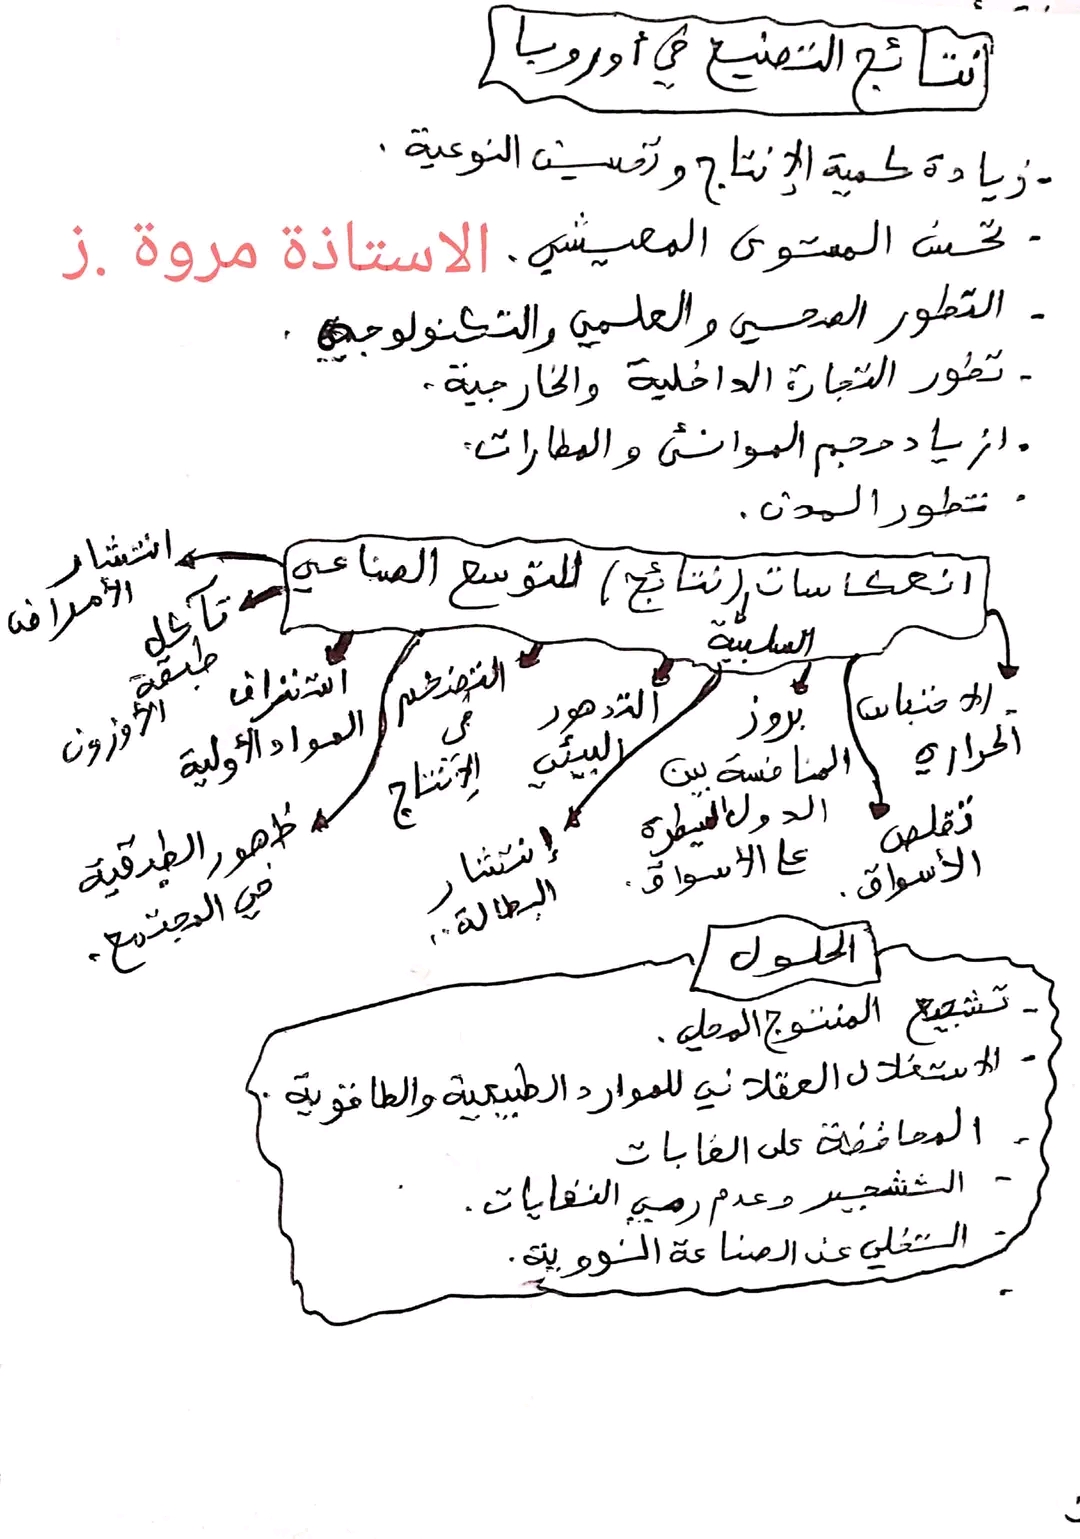 نتائج التصنيع في أوروبا
- زيادة كمية الإنتاج وتحسين النوعية.
- تحسن المستوى المعيشي.
الاستاذة مروة .ز
- التطور الصحي والعلمي والتكنولوجي.
- تطور التجارة الداخلية والخارجية.
- ازياد حجم الموانئ والمطارات.
- تتطور المدن.
انعكاسات (نتائج) للتوسع الصناعي
السلبية
الاحتباس
الحراري
تقلص
الأسواق.
بروز
المنافسة بين
الدول السيطرة
على الأسواق.
التدهور
البيئي
إنتشار
البطالة..
التضخم
في
الإنتاج
ظهور الطبقية
في المجتمع.
استنزاف
المواد الأولية
تآكل
طبقة
الأوزون
انتشار
الأمراض
الحلول
- تشجيع المنتوج المحلي.
- الاستغلال العقلاني للموارد الطبيعية والطاقوية.
- المحافظة على الغابات
- التشجير وعدم رمي النفايات.
- التخلي عن الصناعة النووية.